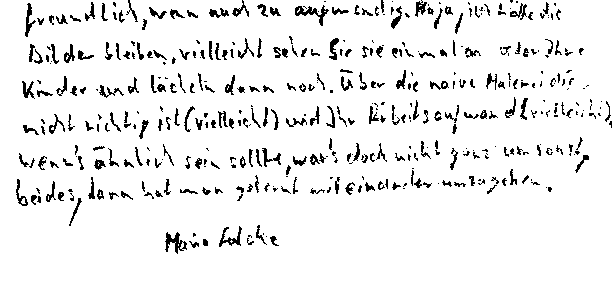 freundlich, wenn auch zu aufwendig. Naja, ich hätte die
Bilder bleiben, vielleicht sehen Sie sie einmal an oder Ihre
Kinder und lächeln dann noch. Über die naive Malerei die
nicht richtig ist (vielleicht) und Ihr Arbeitsaufwand (vielleicht)
wenn's ähnlich sein sollte, war's doch nicht ganz umsonst,
beides, dann hat man gelernt miteinander umzugehen.
Mario